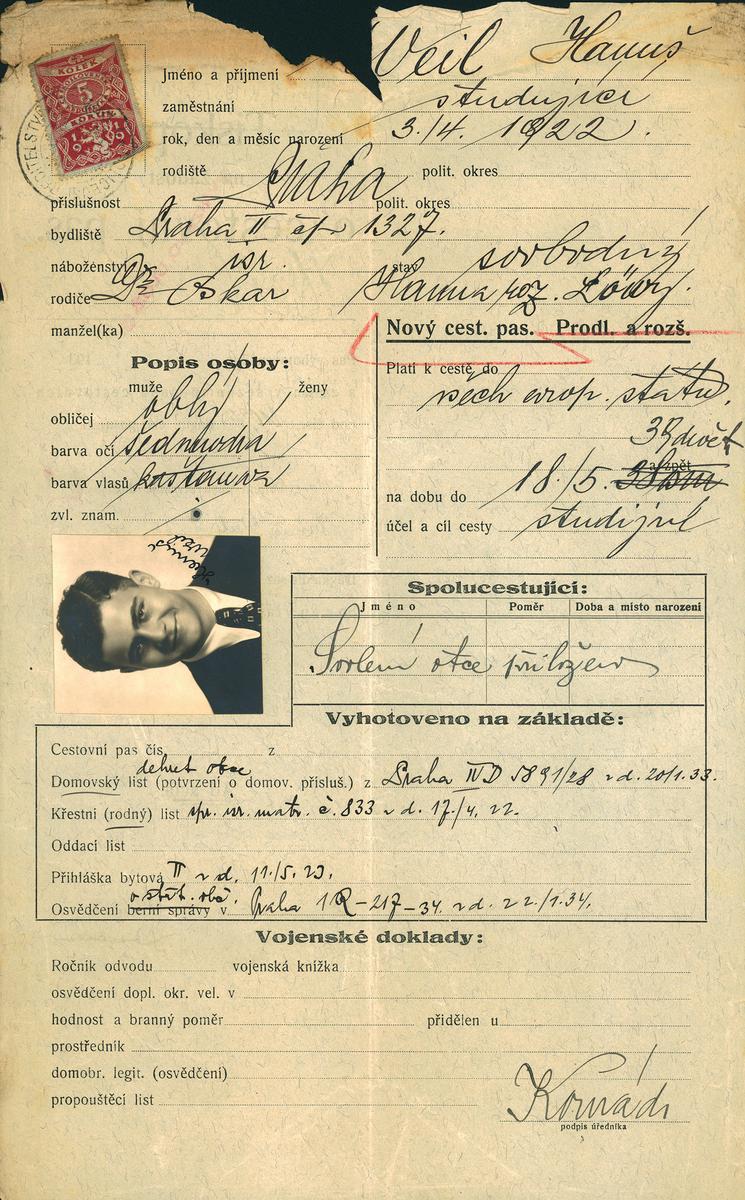 KOLEK
5
KORUN
1919
Jméno a příjmení Veil Hanuš
zaměstnání studující
rok, den a měsíc narození 3./4. 1922.
rodiště Praha polit. okres
příslušnost polit. okres
bydliště Praha II čp 1327.
náboženství isr. stav svobodný
rodiče Dr Oskar Hanna roz. Löwy.
manžel(ka)
Nový cest. pas. Prodl. a rozš.
Popis osoby:
muže ženy
obličej oblý
barva očí šedmodra
barva vlasů kaštanová
zvl. znam.
Platí k cestě do
všech evrop. států.
a zpět
na dobu do 18./5. 39
účel a cíl cesty studijní
Hanuš Veil
Spolucestující:
Jméno Poměr Doba a místo narození
Svolení otce přiloženo
Vyhotoveno na základě:
Cestovní pas čís. z
obce
Domovský list (potvrzení o domov. přísluš.) z Praha IV D 5891/28 z d. 20/1.33.
Křestní (rodný) list isr. matr. č. 833 z d. 17./4. 22.
Oddací list
Přihláška bytová II z d. 11/5. 23.
o stát. obč.
Osvědčení berní správy v Praha 1R-217-34. z d. 22/1.34.
Vojenské doklady:
Ročník odvodu vojenská knížka
osvědčení dopl. okr. vel. v
hodnost a branný poměr přidělen u
prostředník
domobr. legit. (osvědčení)
propouštěcí list
Konrád
podpis úředníka